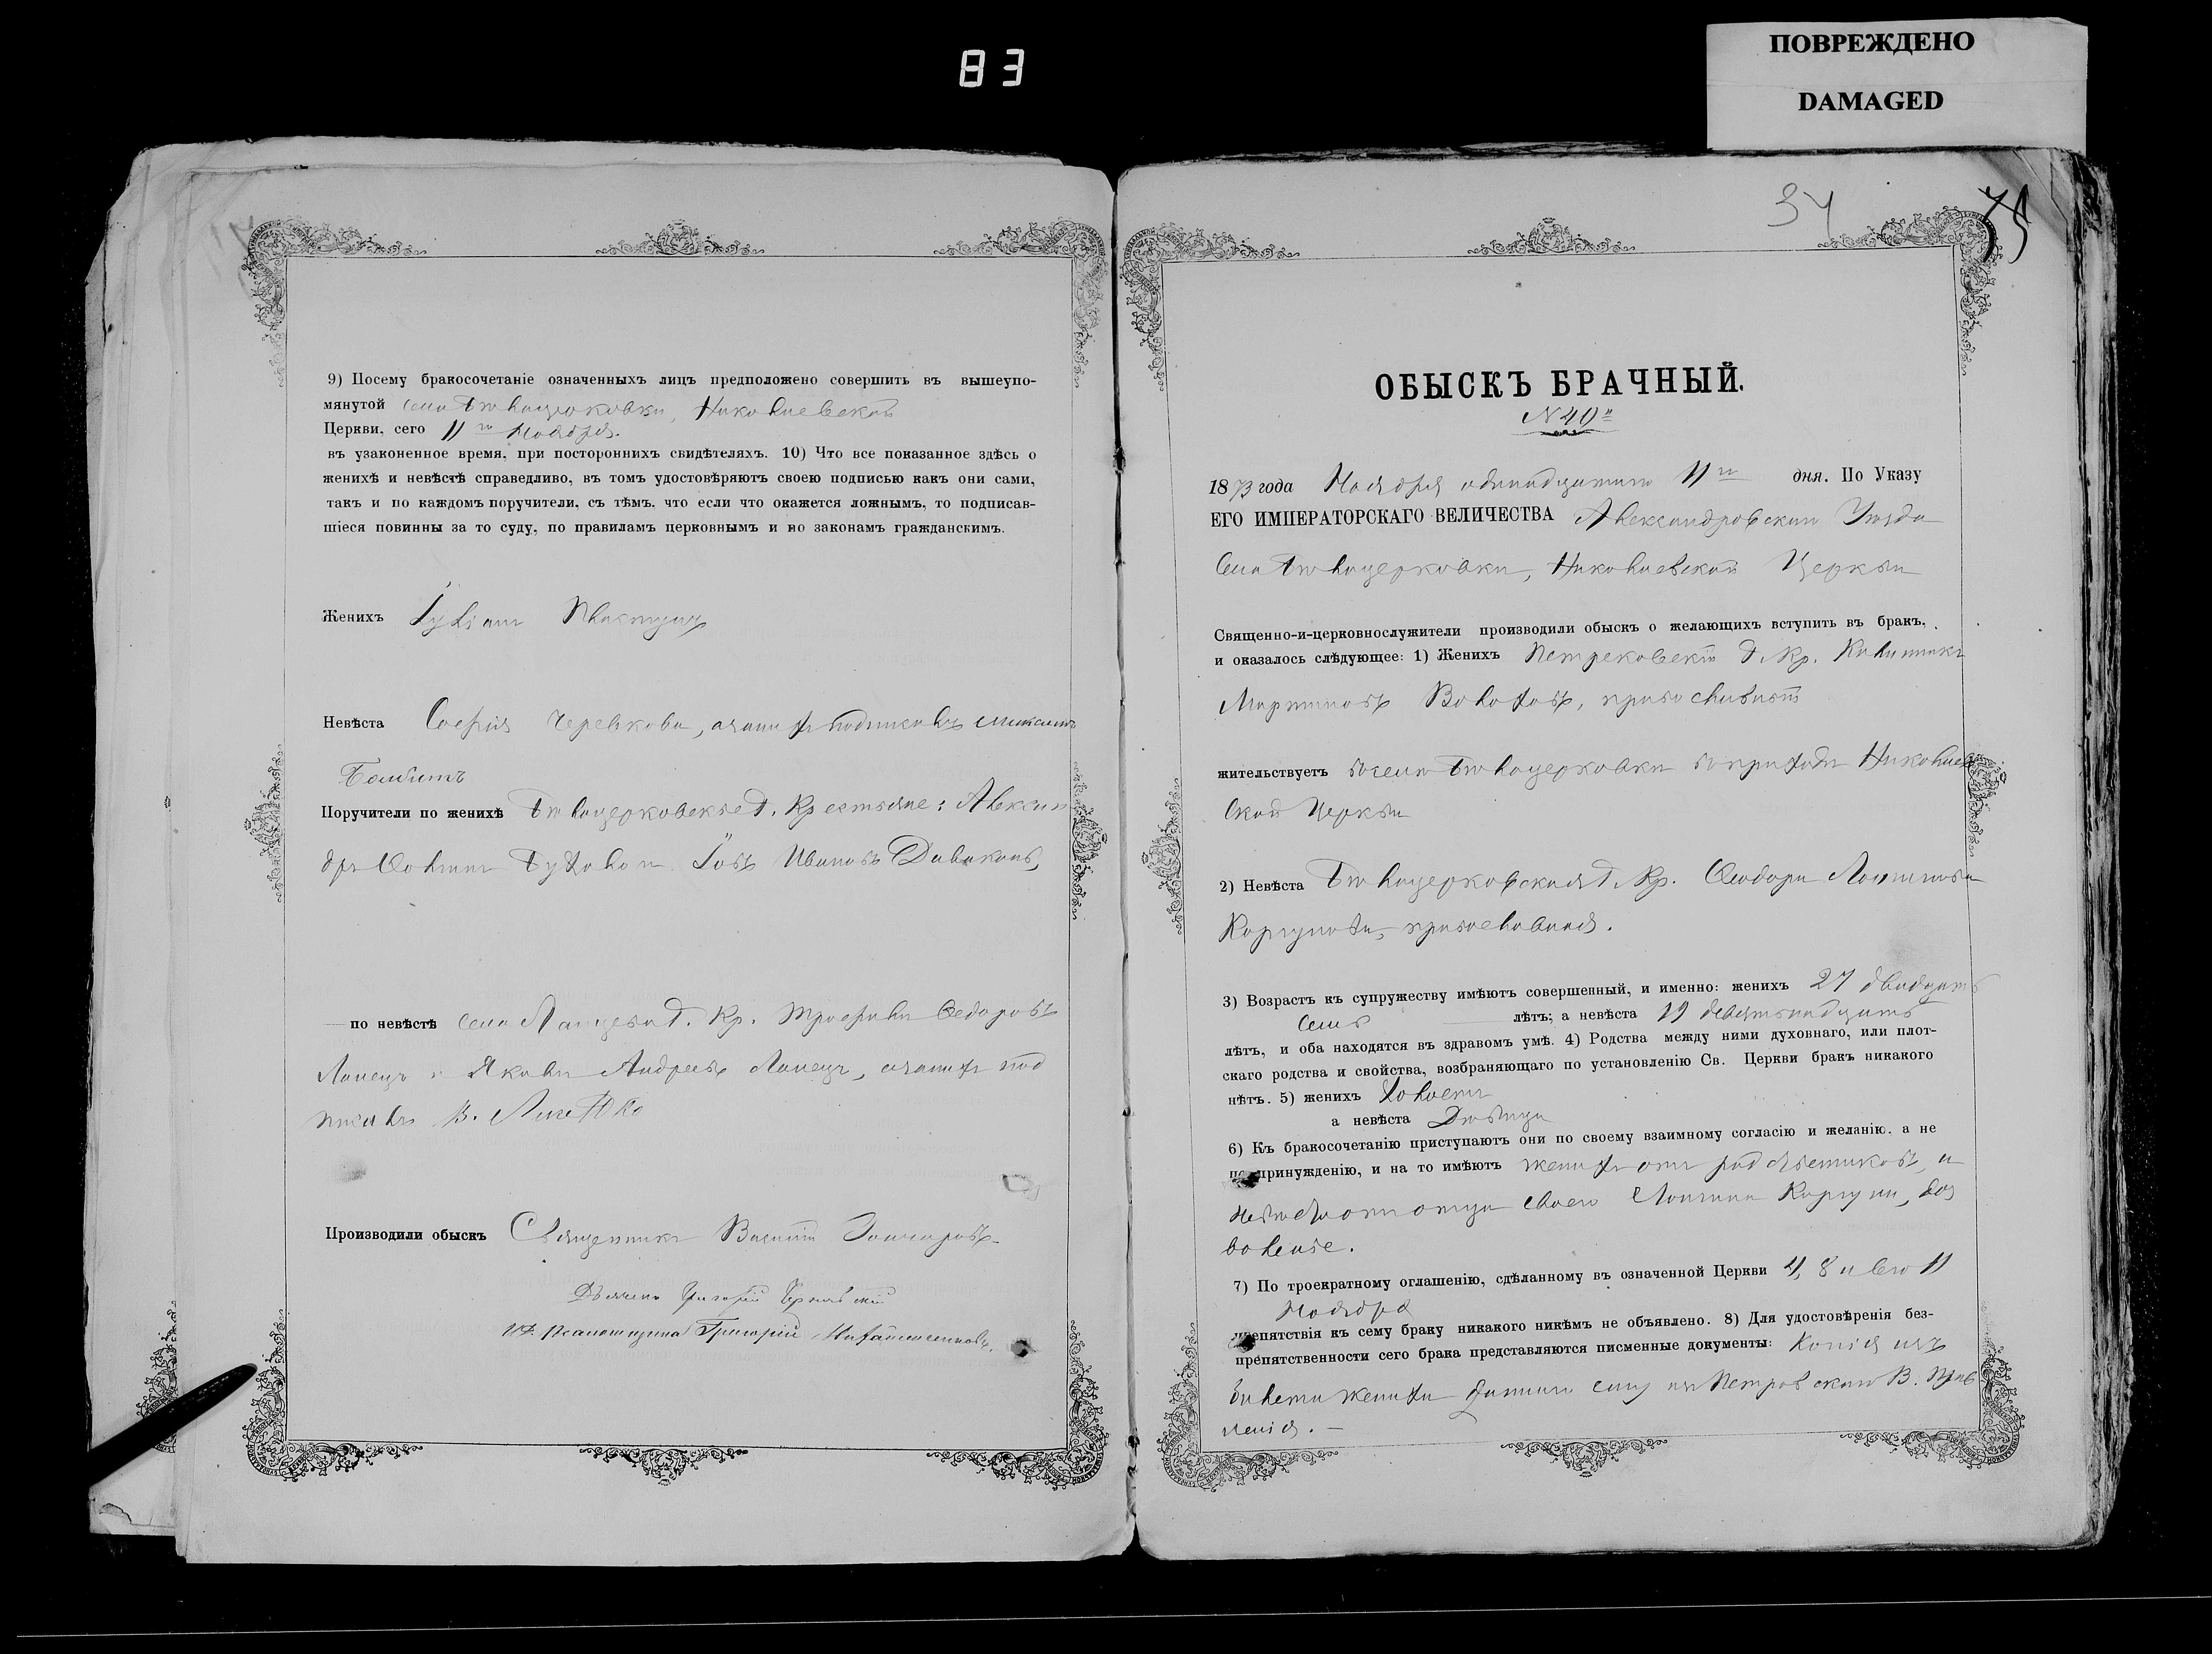 83
ПОВРЕЖДЕНО
DAMAGED
9) Посему бракосочетаніе означенныхъ лицъ предположено совершить въ вышеупо-
мянутой села Николаевской
Церкви, сего 11го Ноября.
въ узаконенное время, при постороннихъ свидѣтеляхъ. 10) Что все показанное здѣсь о
женихѣ и невѣстѣ справедливо, въ томъ удостовѣряютъ своею подписью какъ они сами,
такъ и по каждомъ поручители, съ тѣмъ, что если что окажется ложнымъ, то подписав-
шіеся повинны за то суду, по правиламъ церковнымъ и по законамъ гражданскимъ.
Женихъ
Невѣста Софія Черевкова, а за нихъ подписалъ
Поручители по женихѣ Бѣлоцерковскіе Г. Крестьяне: Алексан
дръ и Іовъ Ивановъ
по невѣстѣ села Г. Кр. Трофимъ Ѳедоровъ
Лапецъ и Яковъ Андреевъ Лапецъ, а за нихъ под
писалъ В.
Производили обыскъ Священникъ Василій Гончаровъ
Дьячекъ Григорій
И.Д. Псаломщика Григорій
34
75
ОБЫСКЪ БРАЧНЫЙ.
N 40й
1873 года Ноября одинадцатаго 11го дня. По Указу
ЕГО ИМПЕРАТОРСКАГО ВЕЛИЧЕСТВА Александровскаго Уѣзда
Села Бѣлоцерковки, Николаевской Церкви
Священно-и-церковнослужители производили обыскъ о желающихъ вступить въ бракъ,
и оказалось слѣдующее: 1) Женихъ Г. Кр.
Мартиновъ Волохъ, православный
жительствуетъ въ селѣ Бѣлоцерковки въ приходѣ Николаев
ской Церкви
2) Невѣста Бѣлоцерковская Г. Кр. Ѳеодора Логинова
Коргунова, православная.
3) Возрастъ къ супружеству имѣютъ совершенный, и именно: женихъ 27 двадцать
семь лѣтъ; а невѣста 19 девятнадцать
лѣтъ, и оба находятся въ здравомъ умѣ. 4) Родства между ними духовнаго, или плот-
скаго родства и свойства, возбраняющаго по установленію Св. Церкви бракъ никакого
нѣтъ. 5) женихъ Холостъ
а невѣста Дѣвица
6) Къ бракосочетанію приступаютъ они по своему взаимному согласію и желанію, а не
по принужденію, и на то имѣютъ женихъ отъ родственниковъ, и
невѣста отъ отца своего Логина Коргуна, доз
воленіе.
7) По троекратному оглашенію, сдѣланному въ означенной Церкви 4, 8 и сего 11
Ноября
препятствія къ сему браку никакого никѣмъ не объявлено. 8) Для удостовѣренія без-
препятственности сего брака представляются писменные документы: Копія изъ
билета жениха даннаго ему изъ Петровскаго В. Прав
ленія. —